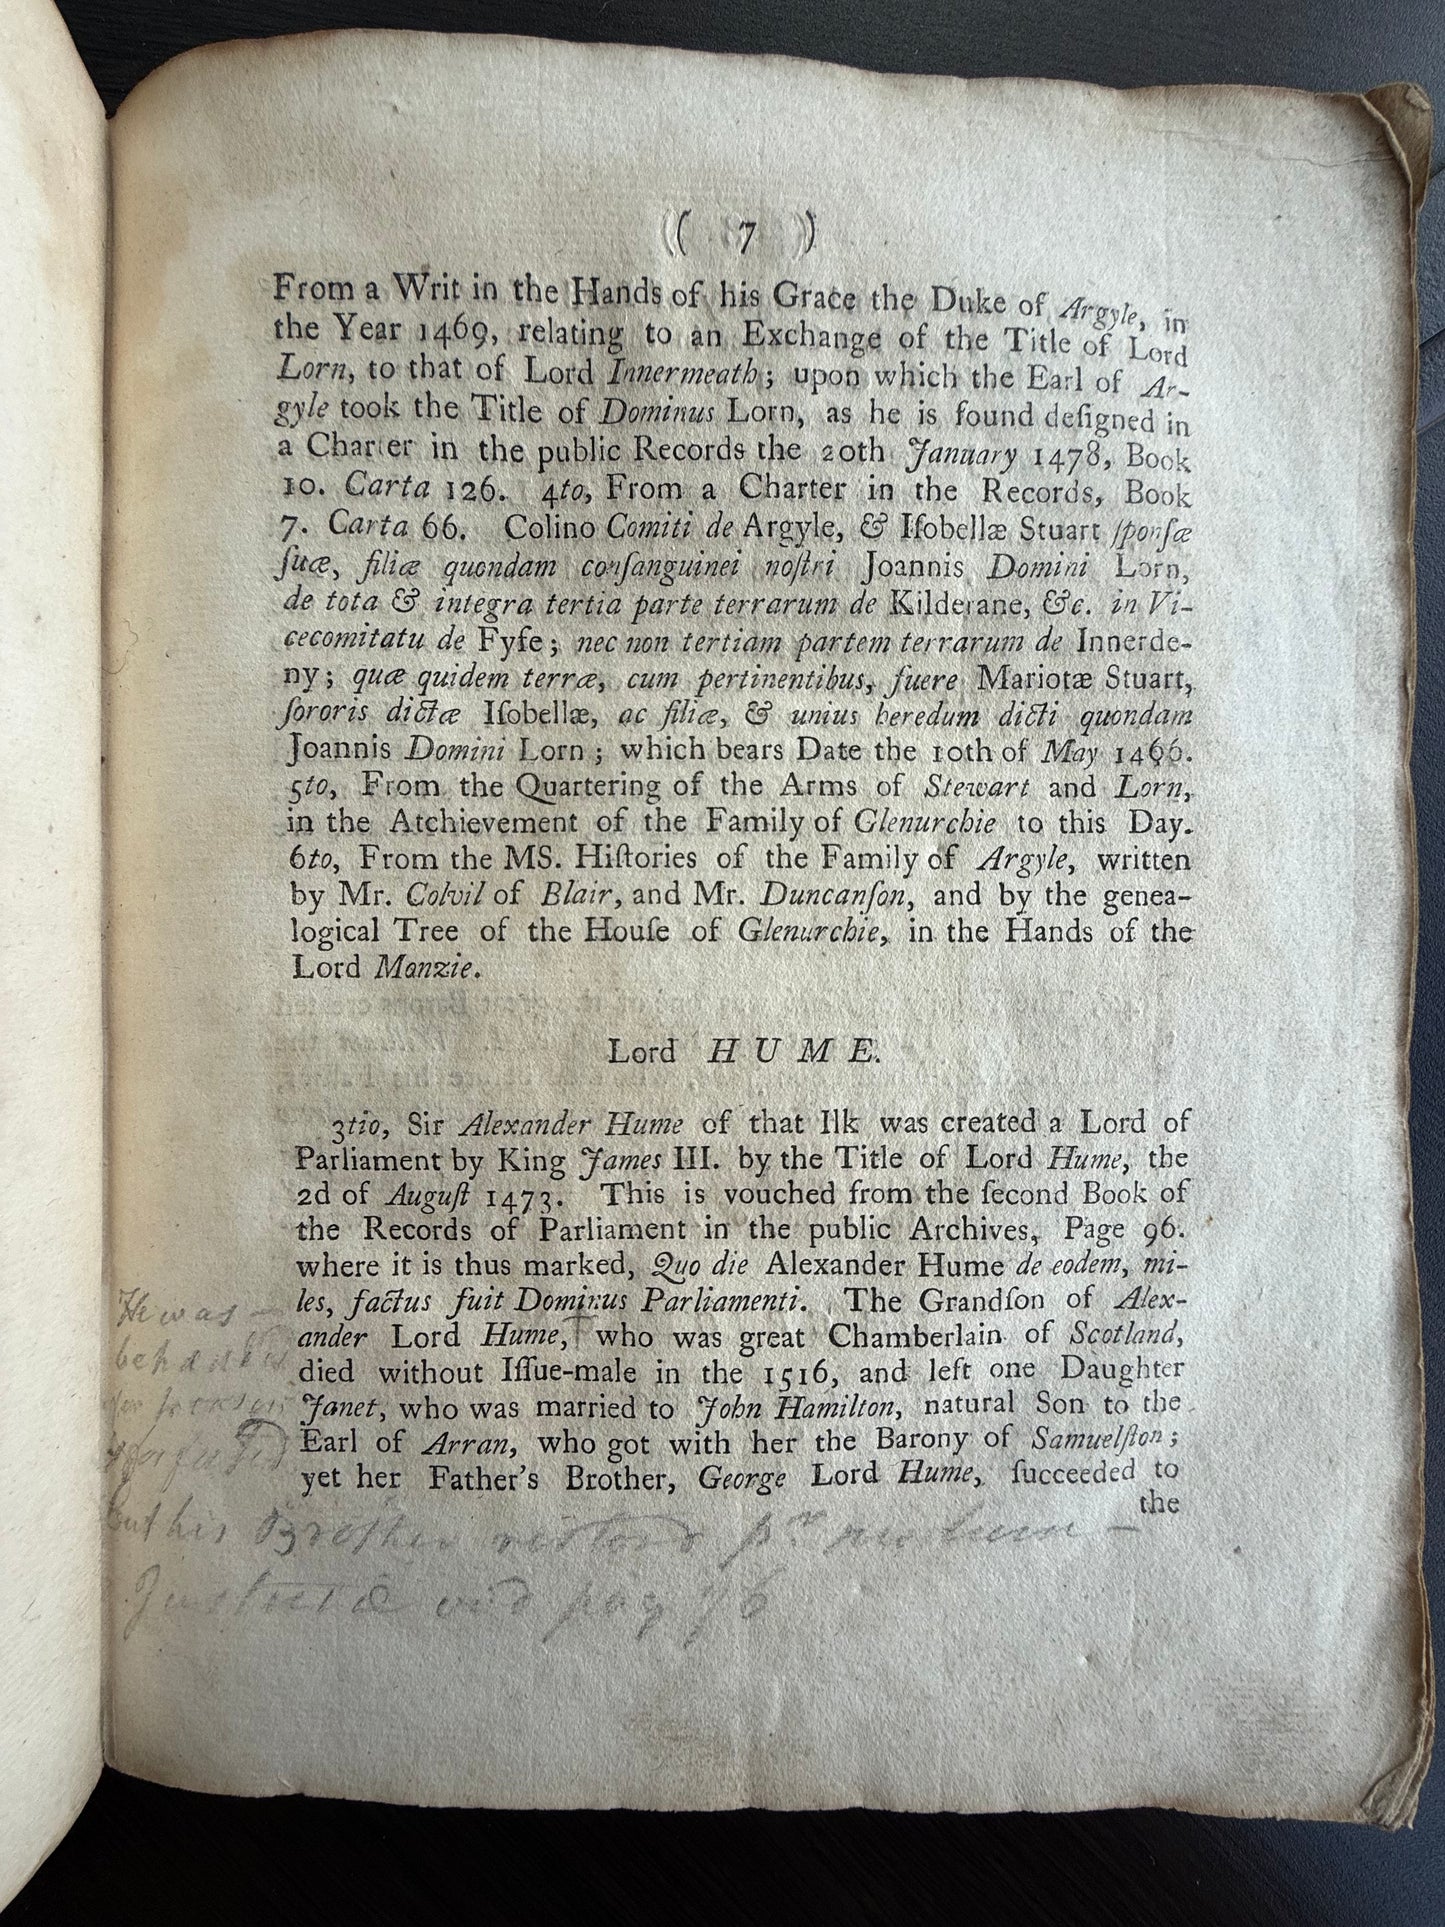 ( 7 )
From a Writ in the Hands of his Grace the Duke of Argyle, in
the Year 1469, relating to an Exchange of the Title of Lord
Lorn, to that of Lord Innermeath; upon which the Earl of Ar-
gyle took the Title of Dominus Lorn, as he is found deſigned in
a Charter in the public Records the 20th January 1478, Book
10. Carta 126. 4to, From a Charter in the Records, Book
7. Carta 66. Colino Comiti de Argyle, & Iſobellæ Stuart ſponſæ
ſuæ, filiæ quondam conſanguinei noſtri Joannis Domini Lorn,
de tota & integra tertia parte terrarum de Kilderane, &c. in Vi-
cecomitatu de Fyfe; nec non tertiam partem terrarum de Innerde-
ny; quæ quidem terræ, cum pertinentibus, fuere Mariotæ Stuart,
ſororis dictæ Iſobellæ, ac filiæ, & unius heredum dicti quondam
Joannis Domini Lorn; which bears Date the 10th of May 1466.
5to, From the Quartering of the Arms of Stewart and Lorn,
in the Atchievement of the Family of Glenurchie to this Day.
6to, From the MS. Hiſtories of the Family of Argyle, written
by Mr. Colvil of Blair, and Mr. Duncanſon, and by the genea-
logical Tree of the Houſe of Glenurchie, in the Hands of the
Lord Monzie.
Lord HUME.
3tio, Sir Alexander Hume of that Ilk was created a Lord of
Parliament by King James III. by the Title of Lord Hume, the
2d of Auguſt 1473. This is vouched from the ſecond Book of
the Records of Parliament in the public Archives, Page 96.
where it is thus marked, Quo die Alexander Hume de eodem, mi-
les, factus fuit Dominus Parliamenti. The Grandſon of Alex-
ander Lord Hume,† who was great Chamberlain of Scotland,
died without Iſſue-male in the 1516, and left one Daughter
Janet, who was married to John Hamilton, natural Son to the
Earl of Arran, who got with her the Barony of Samuelſton;
yet her Father's Brother, George Lord Hume, ſucceeded to
the
He was
behadded
but his Brother restord pr modum
Justitiæ vid pag 76